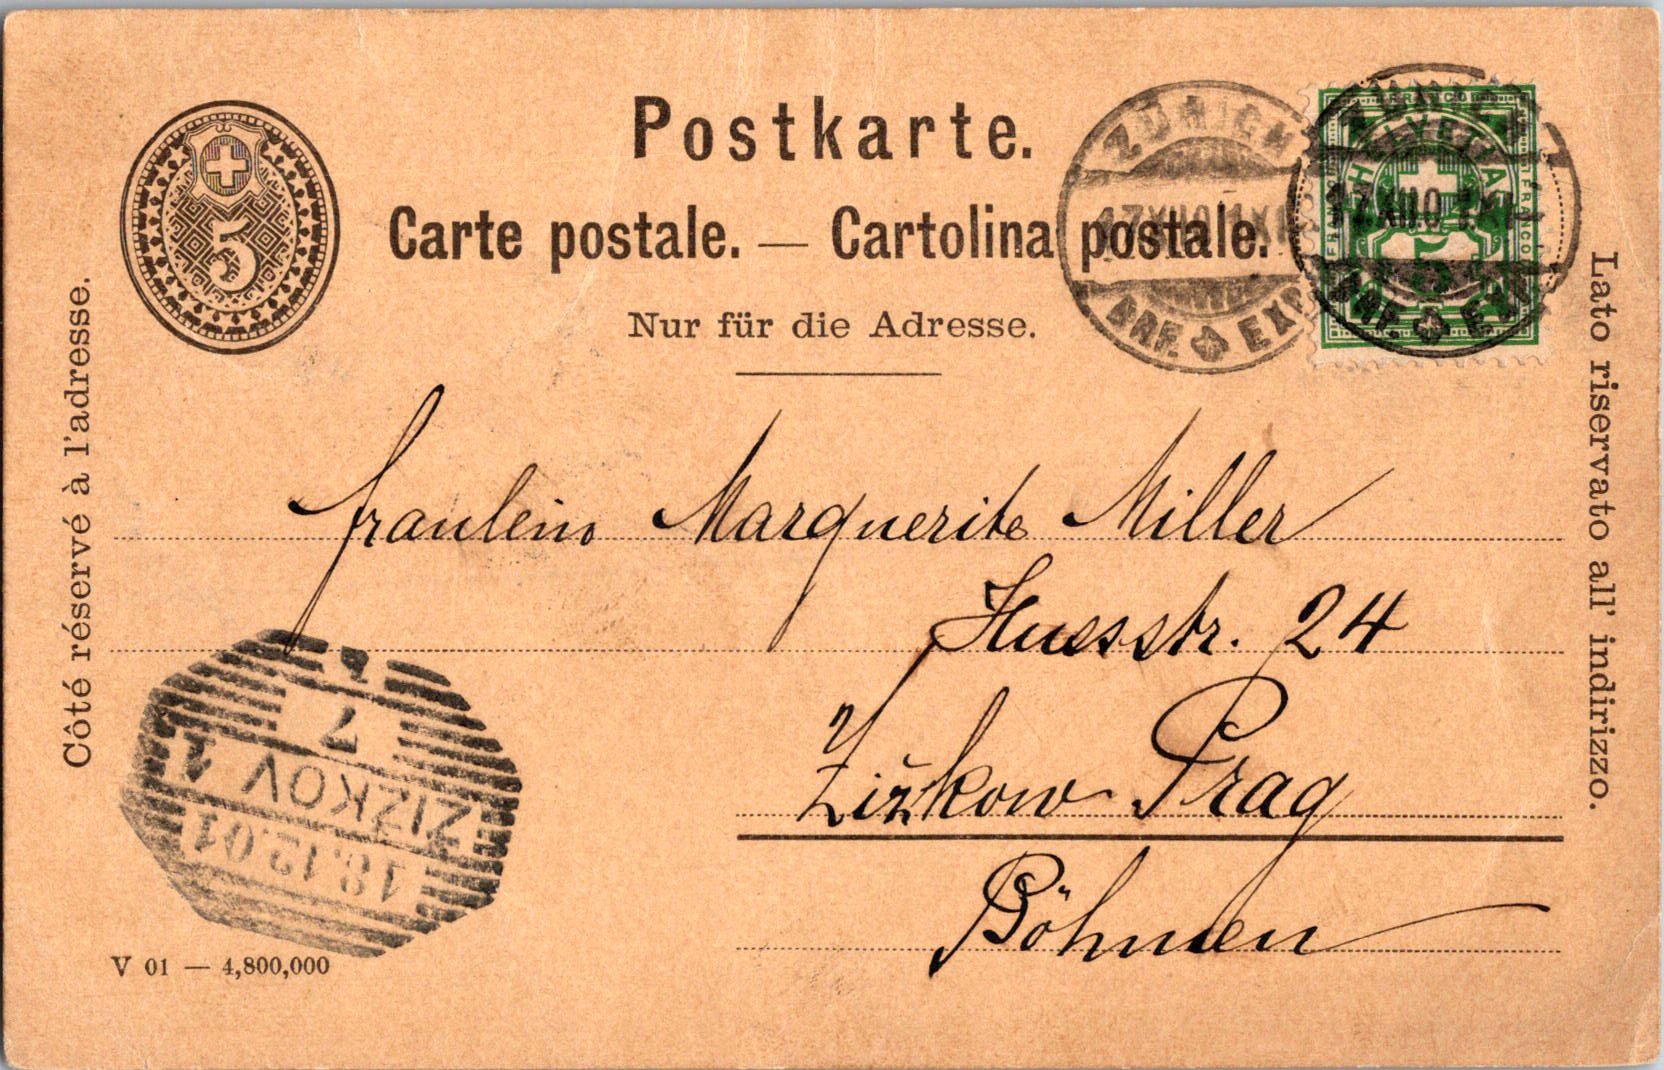 5
Postkarte.
Carte postale. — Cartolina postale.
Nur für die Adresse.
Côté réservé à l'adresse.
Lato riservato all' indirizzo.
FRANCO
HELVETIA
FRANCO
5
ZÜRICH
17.XII.01.XI
BRF. EXP.
ZÜRICH
17.XII.01.XI
BRF. EXP.
Fräulein Marguerite Miller
Hussstr. 24
Žižkow Prag
Böhmen
18.12.01
ŽIŽKOV 1
7
V 01 — 4,800,000